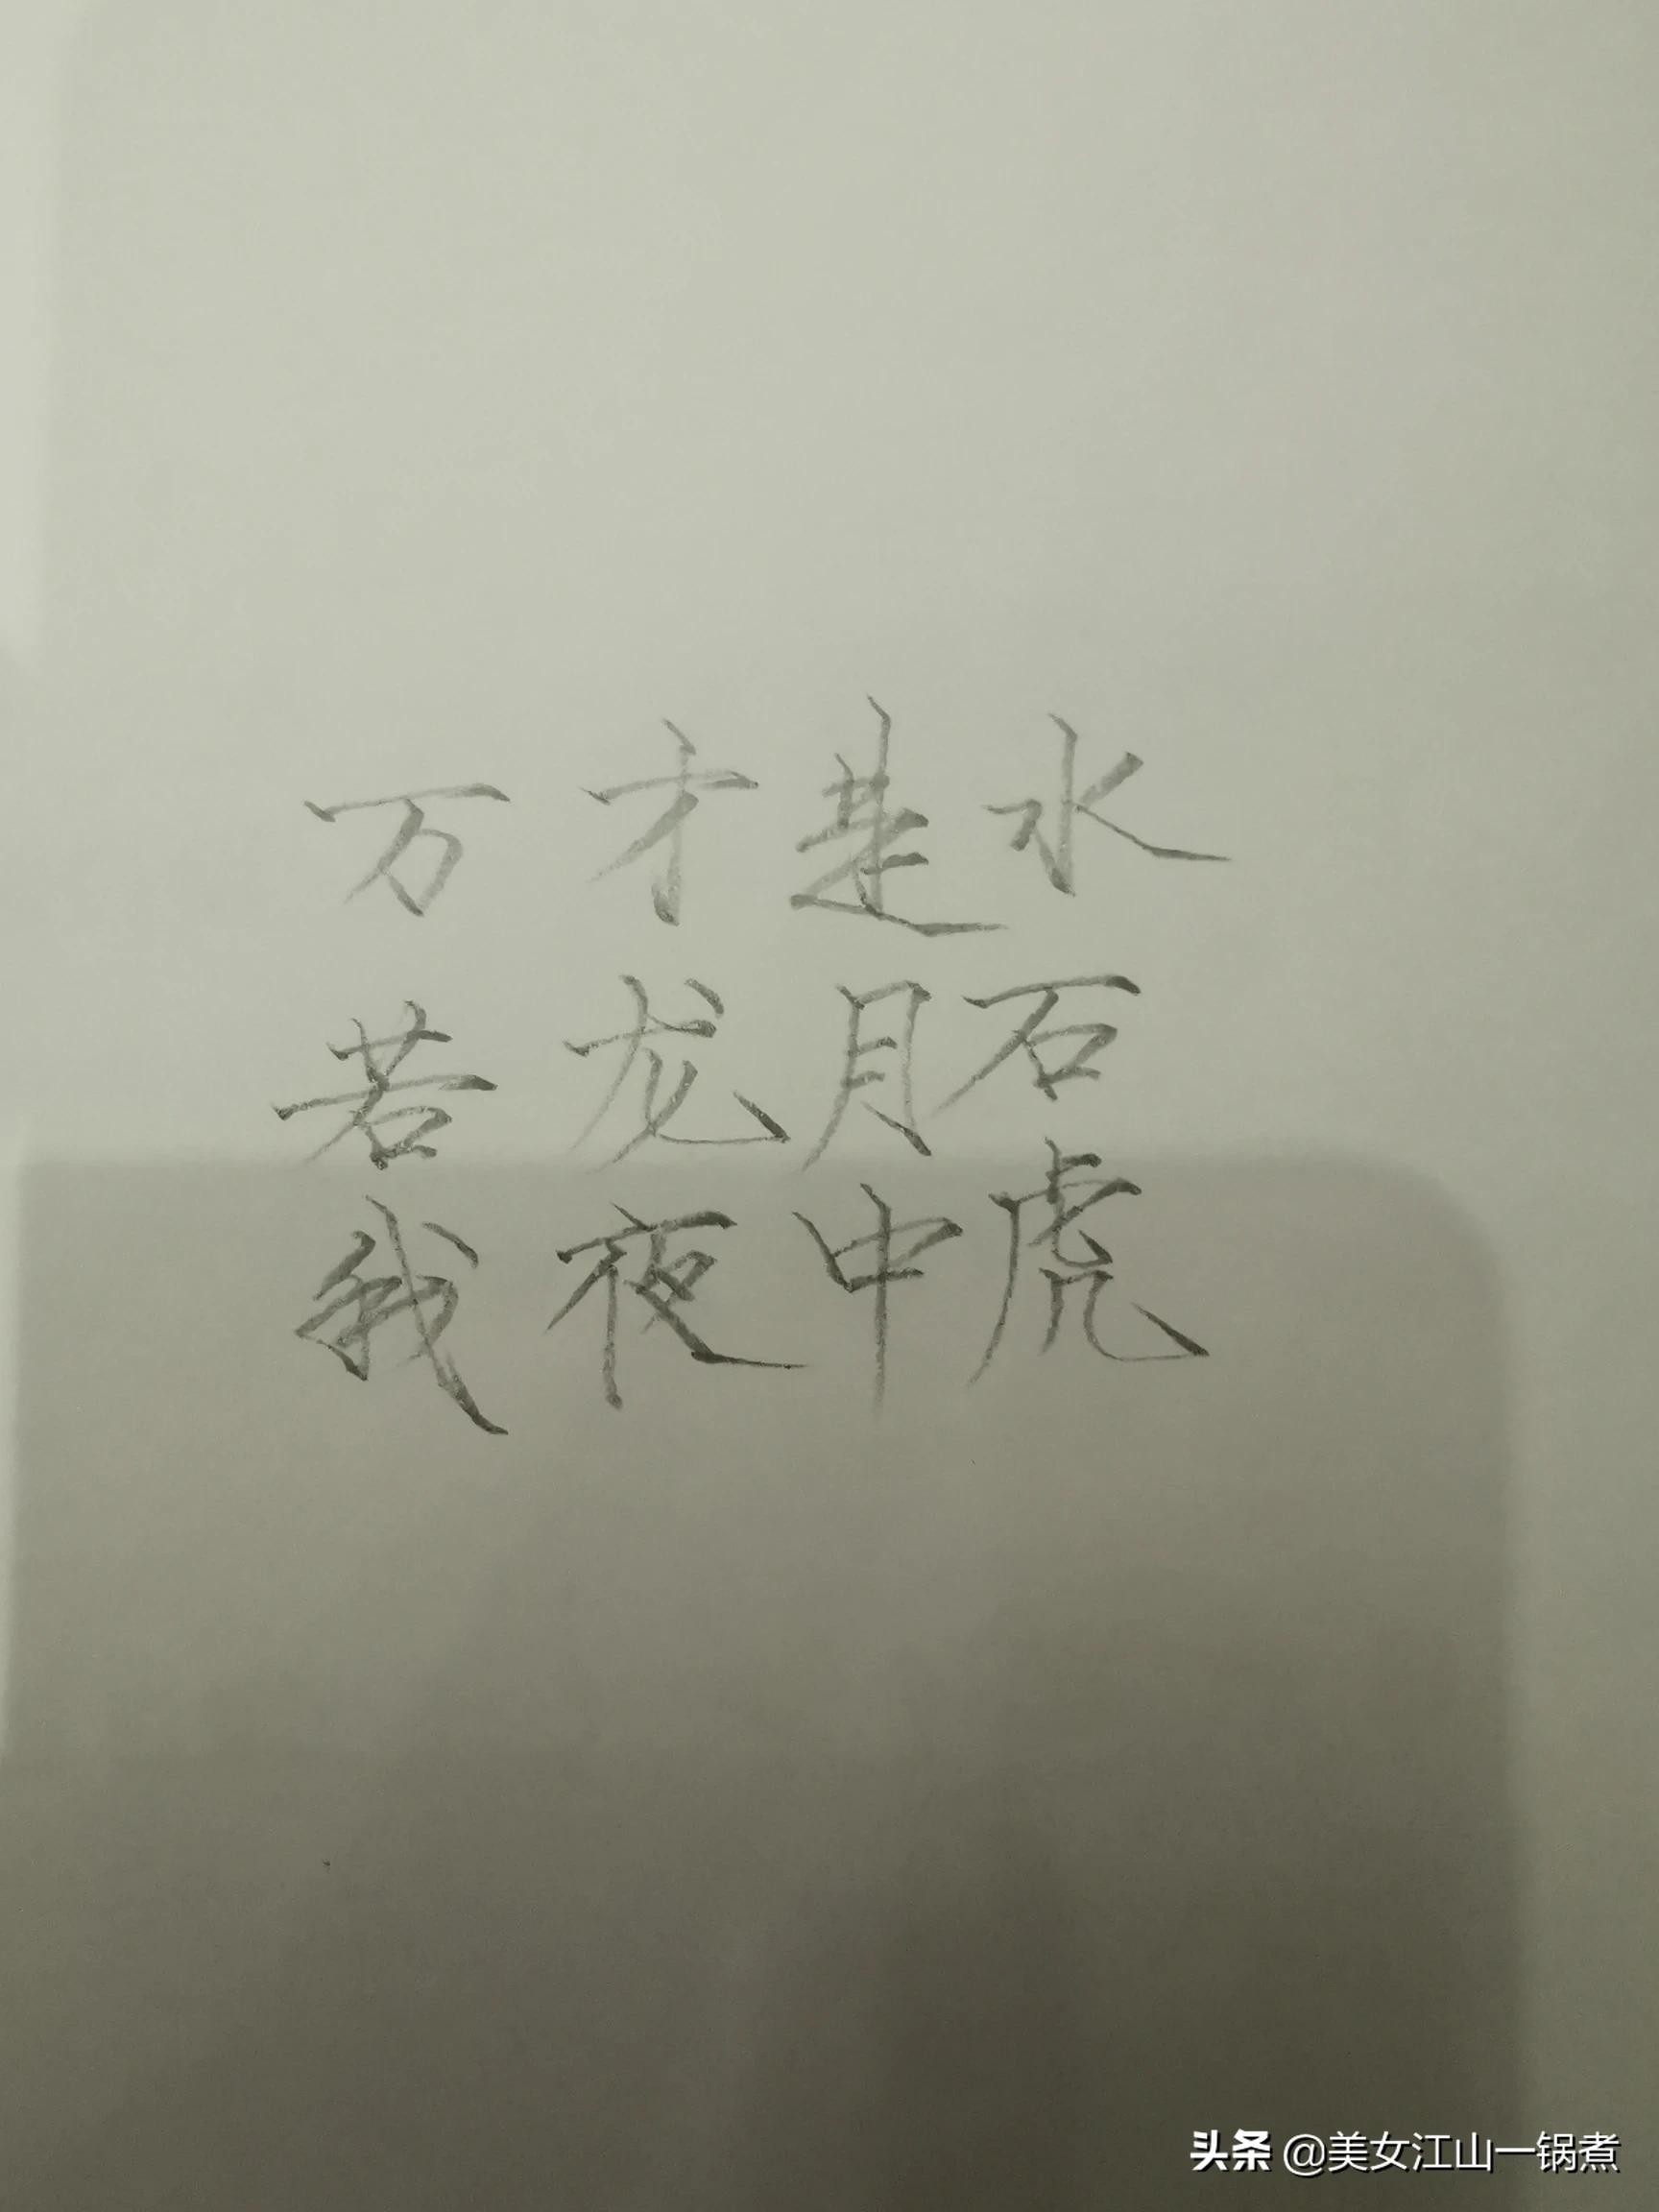 万才是水
若龙月石
我夜中虎
头条 @美女江山一锅煮